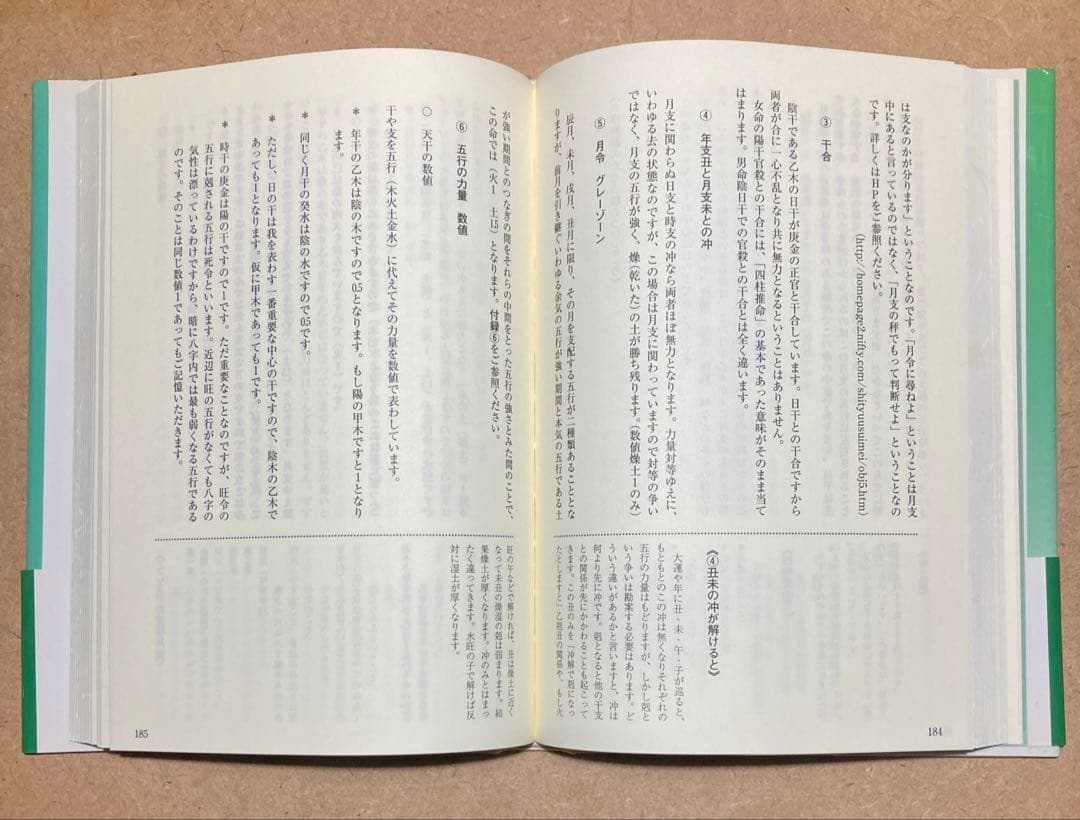 は支なのかが分ります」ということなのです。「月令に尋ねよ」ということは月支
中にあると言っているのではなく、「月支の秤でもって判断せよ」ということなの
です。詳しくはHPをご参照ください。
(http://homepage2.nifty.com/shityuusuimei/obj5.htm)
③ 干合
陰干である乙木の日干が庚金の正官と干合しています。日干との干合ですから
両者が合に一心不乱となり共に無力となるということはありません。
女命の陽干官殺との干合には、「四柱推命」の基本であった意味がそのまま当て
はまります。男命陰日干での官殺との干合とは全く違います。
④ 年支丑と月支未との冲
月支に関わらぬ日支と時支の冲なら両者ほぼ無力となります。力量対等ゆえに、
いわゆる去の状態なのですが、この場合は月支に関わっていますので対等の争い
ではなく、月支の五行が強く、燥(乾いた)の土が勝ち残ります。(数値燥土1のみ)
⑤ 月令 グレーゾーン
辰月、未月、戌月、丑月に限り、その月を支配する五行が二種類あることとな
りますが、前月を引き継ぐいわゆる余気の五行が強い期間と本気の五行である土
《④丑未の冲が解けると》
大運や年に丑・未・午・子が巡ると、
もともとのこの冲は無くなりそれぞれの
五行の力量はもどりますが、しかし剋と
いう争いは勘案する必要はあります。ど
ういう違いがあるかと言いますと、冲は
何より先に冲です。剋となると他の干支
との関係が先にかかわることも起こって
きます。この丑のみを「冲解で剋になっ
たとしますと」乙剋丑の関係や、もし火
184
が強い期間とのつなぎの間をそれらの中間をとった五行の強さとみた間のことで、
この命では(火1 土1.5)となります。付録⑥をご参照ください。
⑥ 五行の力量 数値
○ 天干の数値
干や支を五行(木火土金水)に代えてその力量を数値で表わしています。
* 年干の乙木は陰の木ですので0.5となります。もし陽の甲木ですと1となり
ます。
* 同じく月干の癸水は陰の水ですので0.5です。
* ただし、日の干は我を表わす一番重要な中心の干ですので、陰木の乙木で
あっても1となります。仮に甲木であっても1です。
* 時干の庚金は陽の干ですので1です。ただ重要なことなのですが、旺令の
五行に剋される五行は死令といいます。近辺に旺の五行がなくても八字の
気性は漂っているわけですから、暗に八字内では最も弱くなる五行である
のです。そのことは同じ数値1であってもご記憶いただきます。
旺の午などで解ければ、丑は燥土に近く
なって未丑の燥湿の剋は弱まります。結
果燥土が厚くなります。冲のみとはまっ
たく違ってきます。水旺の子で解けば反
対に湿土が厚くなります。
185